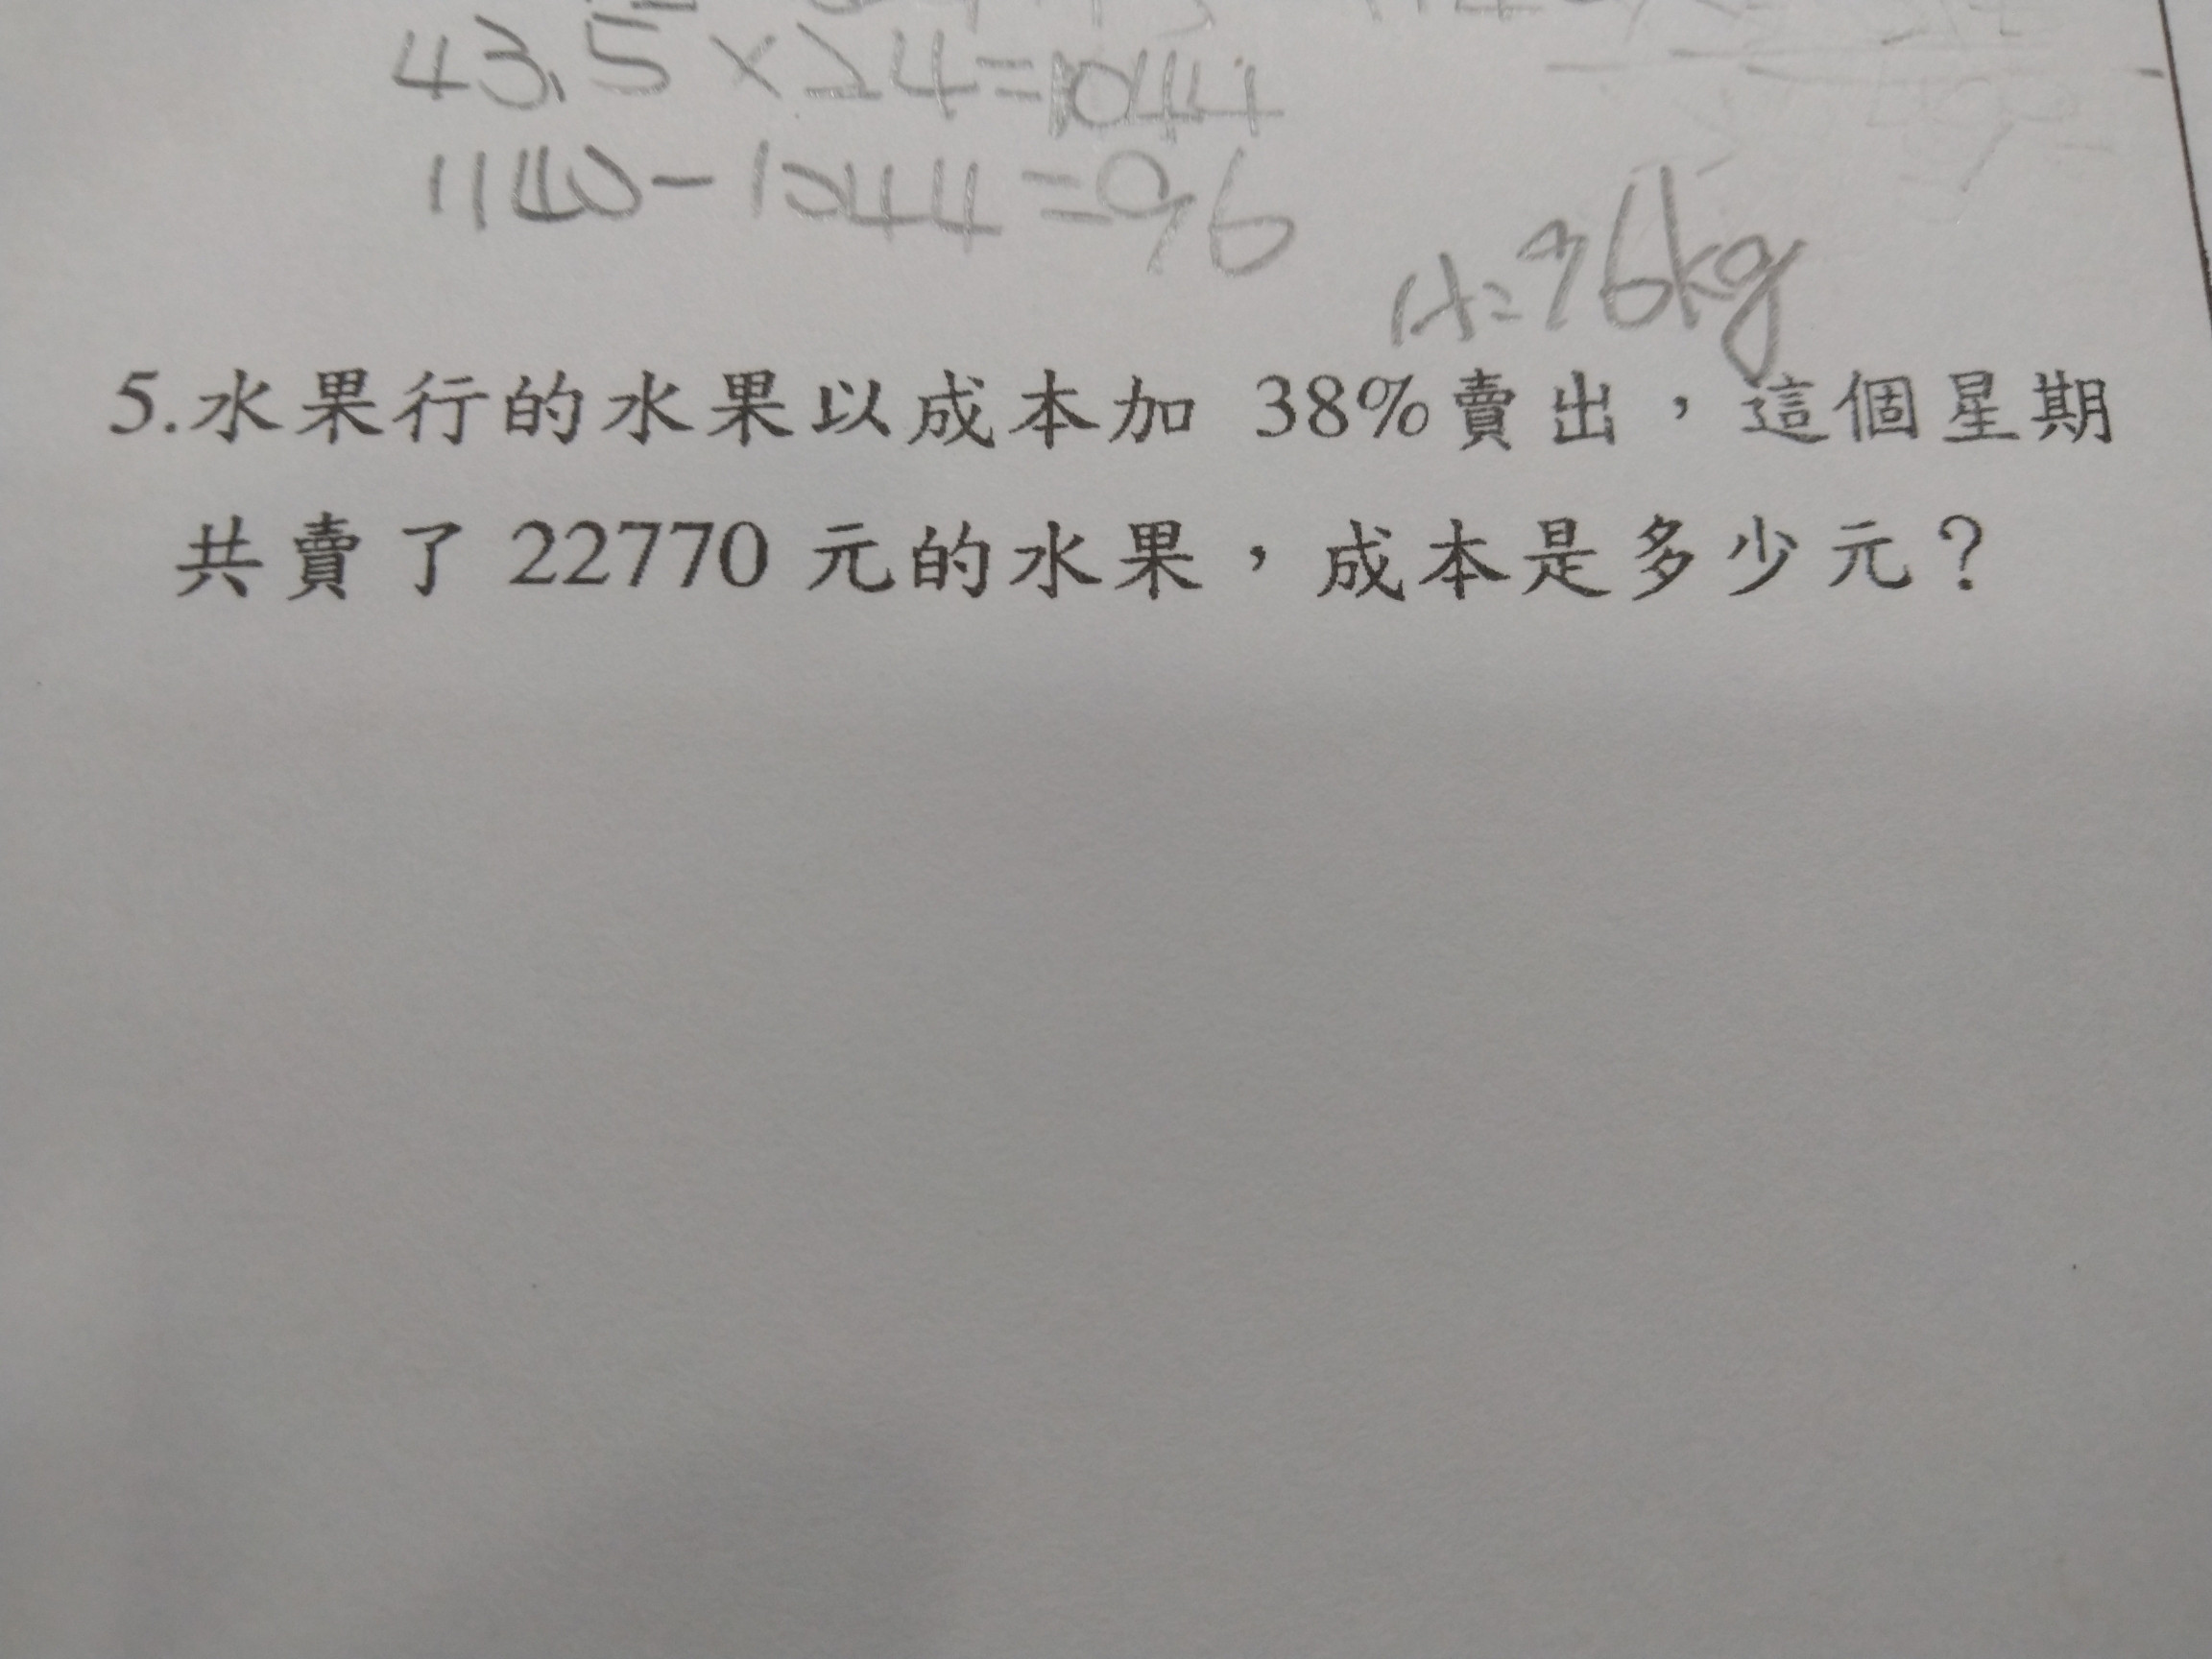 43.5×24=1044
1140-1044=96
A=96kg
5.水果行的水果以成本加 38%賣出，這個星期
共賣了 22770 元的水果，成本是多少元？